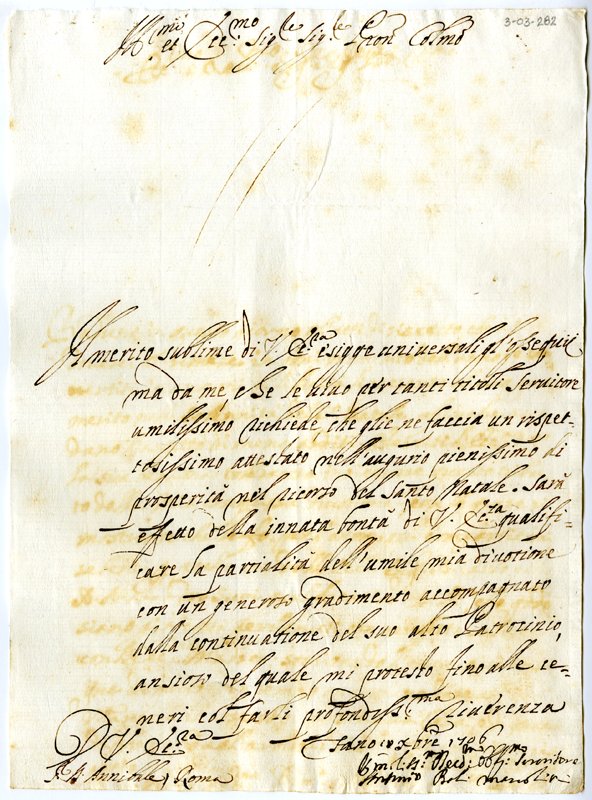 3-03-282
Ill.mo et Ecc.mo Sig.re Sig.re Pron Colmo
Il merito sublime di V. Ecc.za esigge universali gl'ossequii
ma da me, che le vivo per tanti titoli Servitore
umilissimo richiede, che glie ne faccia un rispet=
tosissimo attestato nell'augurio pienissimo di
prosperità nel ricorso del Santo Natale. Sarà
effetto della innata bontà di V. Ecc.za qualifi=
care la partialità dell'umile mia divotione
con un generoso gradimento accompagnato
dalla continuatione del suo alto Patrocinio,
ansioso del quale mi protesto fino alle ce=
neri col farli profondiss.ma riverenza
D V. Ecc.za
Fano xbre 1706
Annibale, Roma
Servitore
Antonio